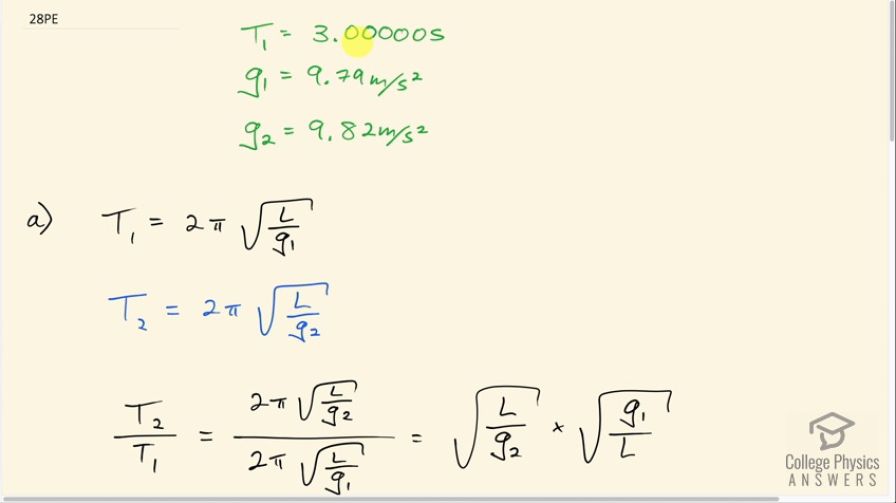 28PE
T₁ = 3.00000s
g₁ = 9.79 m/s²
g₂ = 9.82 m/s²
a) T₁ = 2π √(L/g₁)
T₂ = 2π √(L/g₂)
T₂/T₁ = 2π √(L/g₂) / 2π √(L/g₁) = √(L/g₂) × √(g₁/L)
College Physics
ANSWERS